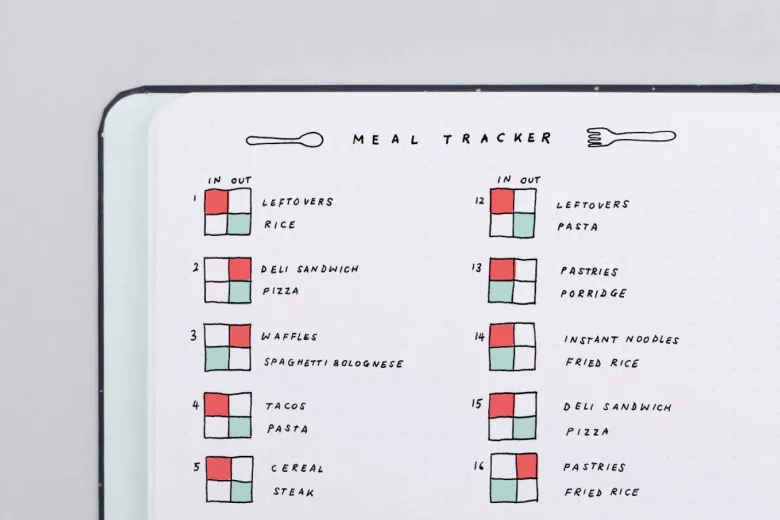 MEAL TRACKER
IN OUT
1 LEFTOVERS
RICE
2 DELI SANDWICH
PIZZA
3 WAFFLES
SPAGHETTI BOLOGNESE
4 TACOS
PASTA
5 CEREAL
STEAK
IN OUT
12 LEFTOVERS
PASTA
13 PASTRIES
PORRIDGE
14 INSTANT NOODLES
FRIED RICE
15 DELI SANDWICH
PIZZA
16 PASTRIES
FRIED RICE